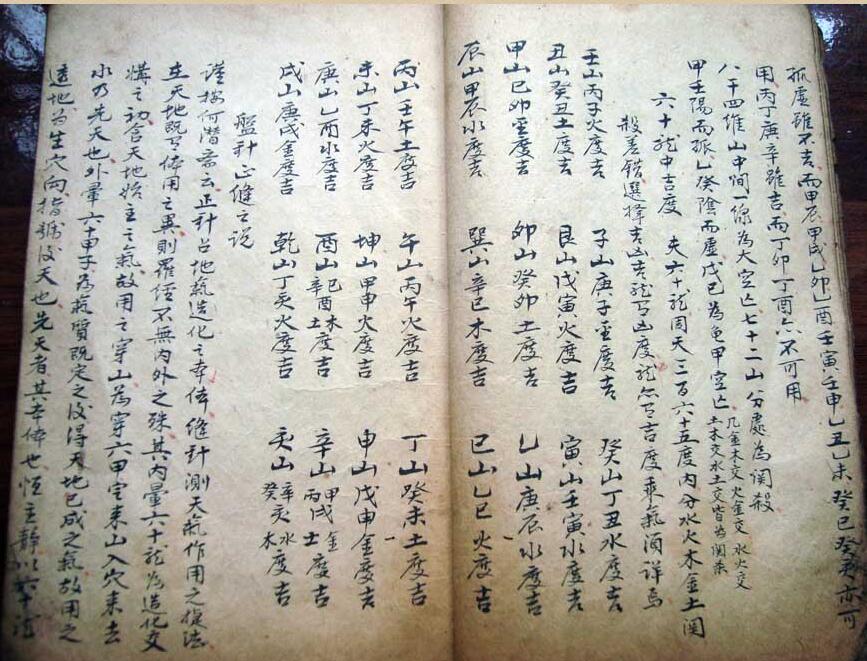 孤虛雖不吉而甲辰甲戌乙卯乙酉壬寅壬申乙丑乙未癸巳癸亥亦可
用丙丁庚辛雖吉而丁卯丁酉亦不可用
八干四維山中間一線為大空亡七十二山分處為関殺
几金木交火金交水火交
土木交水土交皆為関杀
甲壬陽而孤乙癸陰而虛戊己為龟甲空亡
六十龍中吉度 夫六十龍周天三百六十五度內分水火木金土関
殺差錯選擇吉凶吉龍有凶度龍亦有吉度乘氣須詳焉
壬山丙子火度吉 子山庚子金度吉 癸山丁丑水度吉
丑山癸丑土度吉 艮山戊寅火度吉 寅山壬寅水度吉
甲山己卯金度吉 卯山癸卯土度吉 乙山庚辰水度吉
辰山甲辰水度吉 巽山辛巳木度吉 巳山乙巳火度吉
丙山壬午土度吉 午山丙午火度吉 丁山癸未土度吉
未山丁未火度吉 坤山甲申火度吉 申山戊申金度吉
庚山乙酉水度吉 酉山辛酉土己木度吉 辛山丙戌土甲戌金度吉
戌山庚戌金度吉 乾山丁亥火度吉 亥山癸木辛亥水度吉
盤針正縫之说
謹按何潛斋云正針占地氣造化之本体縫針測天氣作用之後法
在天地既有体用之異則羅经不無內外之殊其內暈六十龍為造化交
媾之初含天地始生之氣故用之穿山為穿六甲定来山入穴来去
水乃先天也外暈六十甲子為氣質既定之後得天地已成之氣故用之
透地為生穴向指歸後天也先天者其本体也恒主靜以